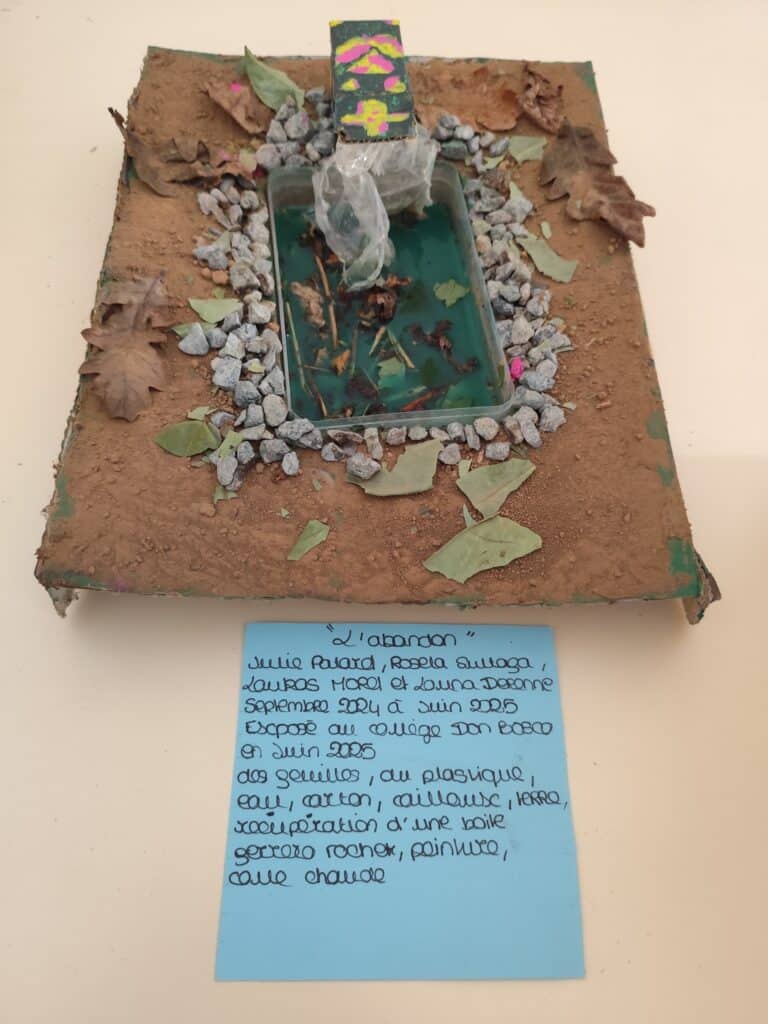 "L'abandon"
Julie Pavard, Rosela
Laukas Morel et Launa Deronne
Septembre 2024 à Juin 2025
Exposé au collège Don Bosco
en Juin 2025
des feuilles, du plastique,
eau, carton, cailleux, terre,
récupération d'une boite
ferrero rocher, peinture,
colle chaude